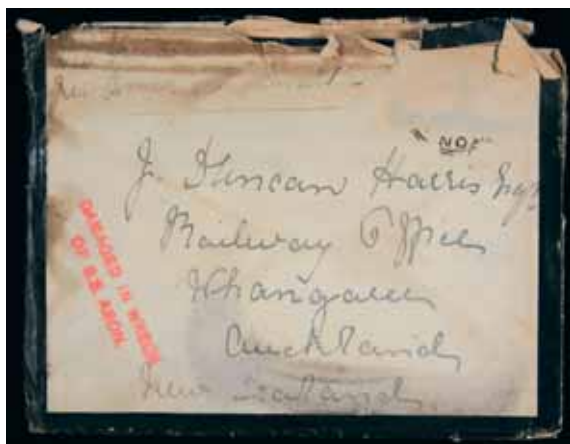 NOT
J. Duncan Harris Esqr
Railway Office
Whangarei
Auckland
New Zealand
DAMAGED IN WRECK
OF S.S. AEON.